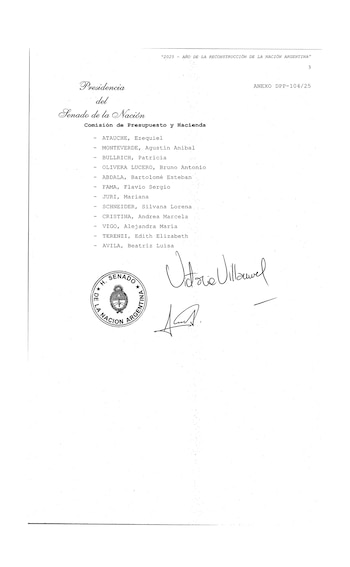 "2025 - AÑO DE LA RECONSTRUCCIÓN DE LA NACIÓN ARGENTINA"
Presidencia
ANEXO DPP-104/25
del
Senado de la Nación
Comisión de Presupuesto y Hacienda
- ATAUCHE, Ezequiel
- MONTEVERDE, Agustín Aníbal
- BULLRICH, Patricia
- OLIVERA LUCERO, Bruno Antonio
- ABDALA, Bartolomé Esteban
- FAMA, Flavio Sergio
- JURI, Mariana
- SCHNEIDER, Silvana Lorena
- CRISTINA, Andrea Marcela
- VIGO, Alejandra María
- TERENZI, Edith Elizabeth
- AVILA, Beatriz Luisa
H. SENADO
DE LA NACION ARGENTINA
Victoria Villarruel